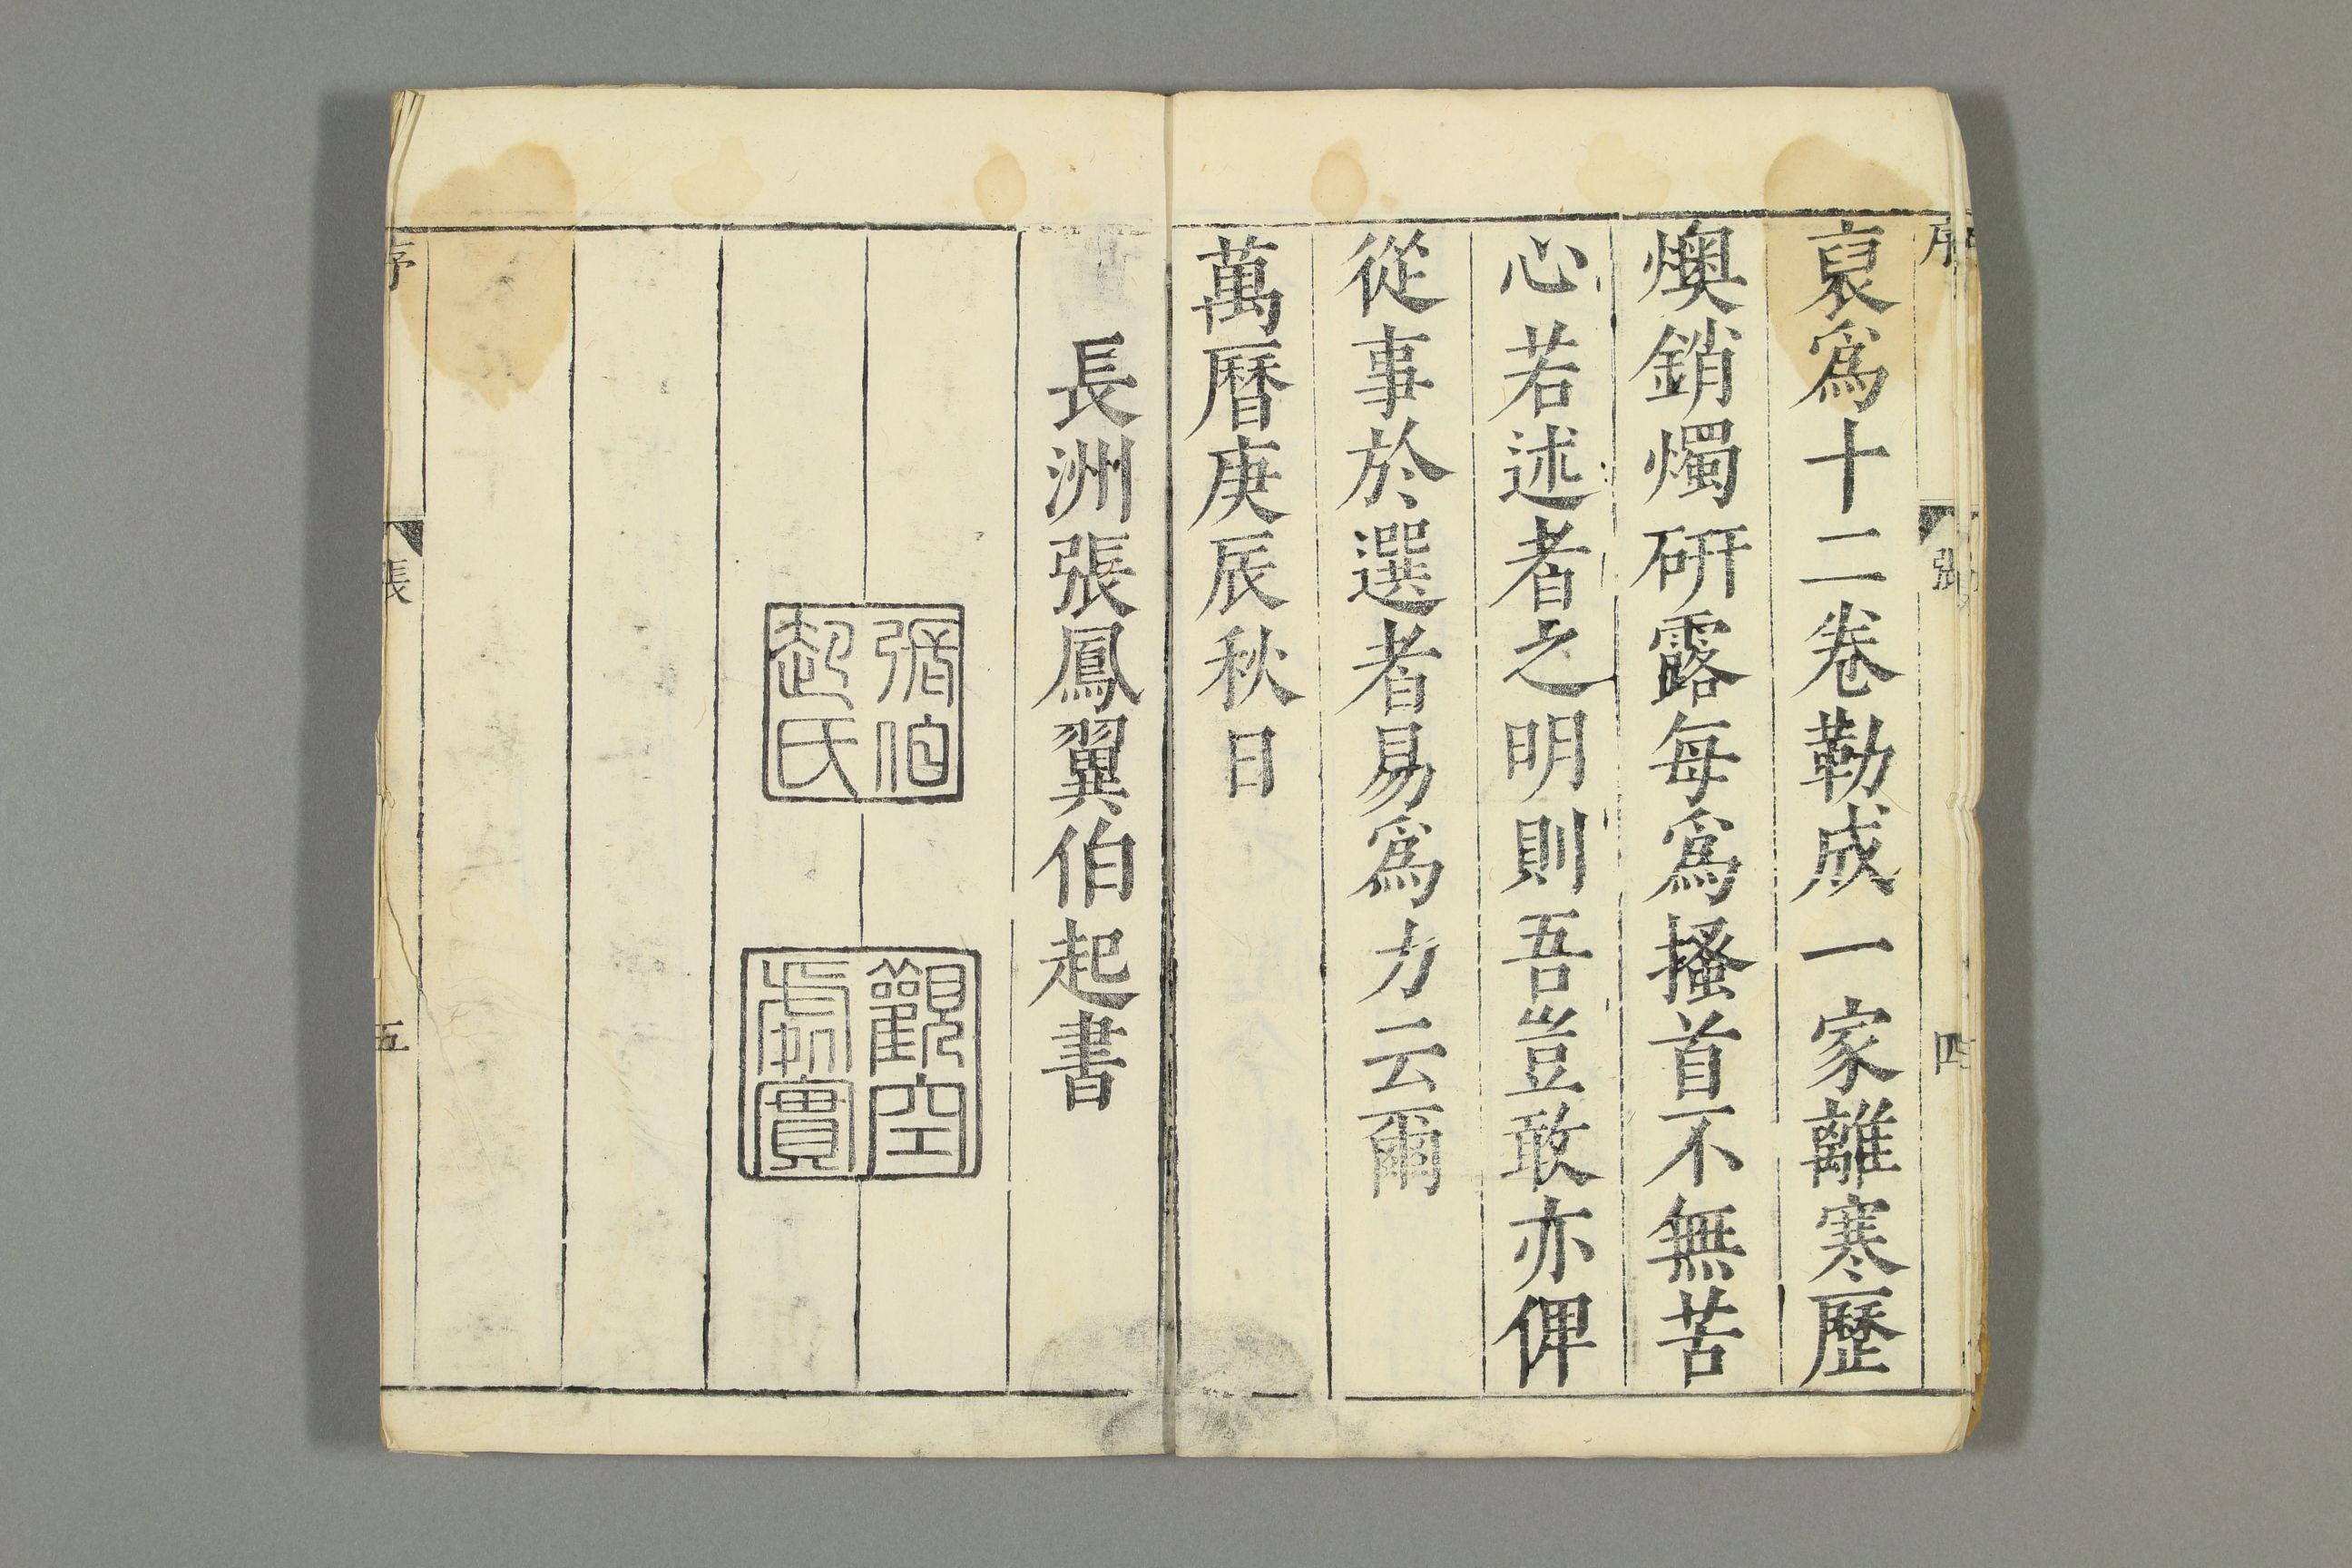 序
張
四
裒爲十二卷勒成一家離寒歷
燠銷燭研露每爲搔首不無苦
心若述者之明則吾豈敢亦俾
從事於選者易爲力云爾
萬曆庚辰秋日
長洲張鳳翼伯起書
張伯起氏
序
張
五